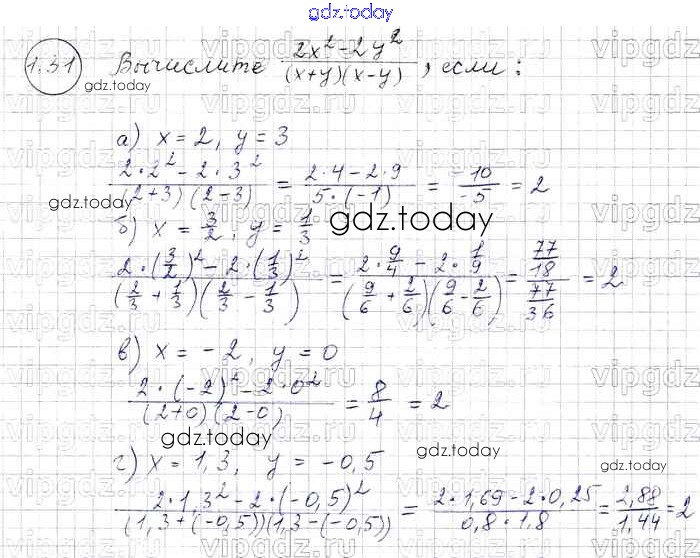 gdz.today
1.31 Вычислите (2x² - 2y²)/((x+y)(x-y)), если:
gdz.today
а) x = 2, y = 3
(2·2² - 2·3²)/((2+3)(2-3)) = (2·4 - 2·9)/(5·(-1)) = -10/-5 = 2
gdz.today
б) x = 3/2, y = 1/3
gdz.today
(2·(3/2)² - 2·(1/3)²)/((2/3 + 1/3)(2/3 - 1/3)) = (2·9/4 - 2·1/9)/((9/6 + 2/6)(9/6 - 2/6)) = (77/18)/(77/36) = 2
в) x = -2, y = 0
(2·(-2)² - 2·0²)/((2+0)(2-0)) = 8/4 = 2
gdz.today
г) x = 1,3, y = -0,5
gdz.today
(2·1,3² - 2·(-0,5)²)/((1,3+(-0,5))(1,3-(-0,5))) = (2·1,69 - 2·0,25)/(0,8·1,8) = 2,88/1,44 = 2
gdz.today